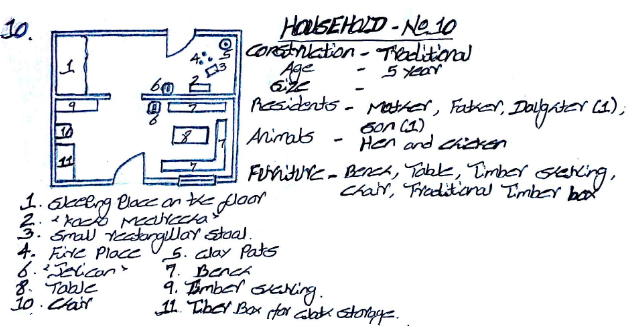 10.
HOUSEHOLD - No. 10
Construction - Traditional
Age - 5 year
Size -
Residents - Mother, Father, Daughter (1),
Son (1)
Animals - Hen and chicken
Furniture - Bench, Table, Timber shelving,
Chair, Traditional Timber box
1 2 3 4 5 6 6 7 7 7 8 9 10 11
1. Sleeping Place on the floor
2. "
3. Small rectangular stool.
4. Fire Place 5. Clay Pots
6. "Jerican" 7. Bench
8. Table 9. Timber shelving.
10. Chair 11. Tiber Box for cloth storage.